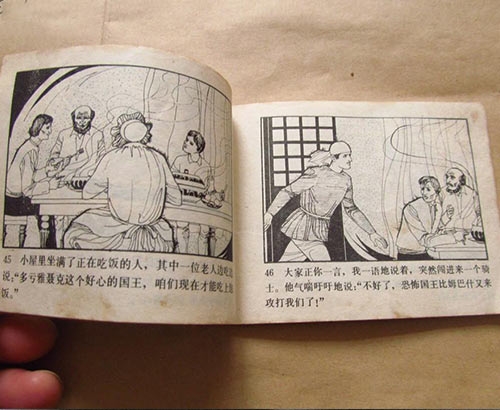 45 小屋里坐满了正在吃饭的人，其中一位老人边吃边
说：“多亏雅聂克这个好心的国王，咱们现在才能吃上
饭。”
46 大家正你一言，我一语地说着，突然闯进来一个骑
士。他气喘吁吁地说：“不好了，恐怖国王比姆巴什又来
攻打我们了！”